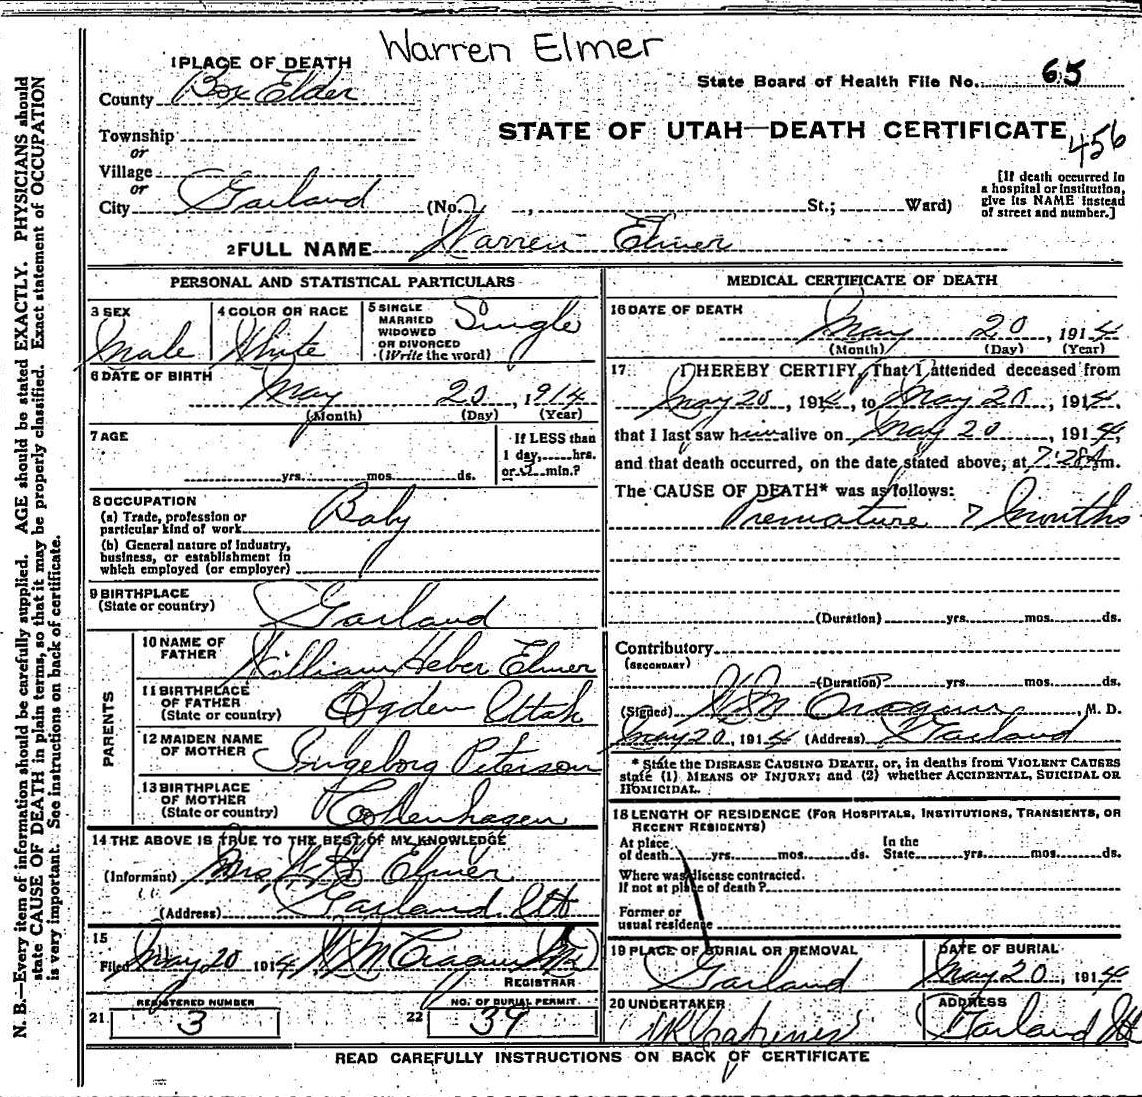 Warren Elmer
1 PLACE OF DEATH
State Board of Health File No. 65
County Box Elder
STATE OF UTAH—DEATH CERTIFICATE
456
Township
or
Village
or
City Garland (No. , St.; Ward)
[If death occurred in
a hospital or institution,
give its NAME instead
of street and number.]
2 FULL NAME Warren Elmer
PERSONAL AND STATISTICAL PARTICULARS
3 SEX
Male
4 COLOR OR RACE
White
5 SINGLE
MARRIED
WIDOWED
OR DIVORCED
(Write the word)
Single
6 DATE OF BIRTH
May 20, 1914
(Month) (Day) (Year)
7 AGE
yrs. mos. ds.
If LESS than
1 day, hrs.
or min.?
8 OCCUPATION
(a) Trade, profession or
particular kind of work Baby
(b) General nature of industry,
business, or establishment in
which employed (or employer)
9 BIRTHPLACE
(State or country) Garland
PARENTS
10 NAME OF
FATHER William Heber Elmer
11 BIRTHPLACE
OF FATHER
(State or country) Ogden Utah
12 MAIDEN NAME
OF MOTHER Ingeborg Peterson
13 BIRTHPLACE
OF MOTHER
(State or country) Copenhagen
14 THE ABOVE IS TRUE TO THE BEST OF MY KNOWLEDGE
(Informant) Mrs. W. H. Elmer
(Address) Garland, Ut
15
Filed May 20 1914
REGISTRAR
REGISTERED NUMBER
21 3
NO. OF BURIAL PERMIT
22 39
MEDICAL CERTIFICATE OF DEATH
16 DATE OF DEATH
May 20, 1914
(Month) (Day) (Year)
17 I HEREBY CERTIFY, That I attended deceased from
May 20, 1914, to May 20, 1914,
that I last saw him alive on May 20, 1914,
and that death occurred, on the date stated above, at 7:28 A m.
The CAUSE OF DEATH* was as follows:
Premature 7 months
(Duration) yrs. mos. ds.
Contributory
(SECONDARY)
(Duration) yrs. mos. ds.
(Signed) , M. D.
May 20, 1914 (Address) Garland
* State the DISEASE CAUSING DEATH, or, in deaths from VIOLENT CAUSES
state (1) MEANS OF INJURY; and (2) whether ACCIDENTAL, SUICIDAL OR
HOMICIDAL.
18 LENGTH OF RESIDENCE (FOR HOSPITALS, INSTITUTIONS, TRANSIENTS, OR
RECENT RESIDENTS)
At place
of death yrs. mos. ds.
In the
State yrs. mos. ds.
Where was disease contracted.
If not at place of death?
Former or
usual residence
19 PLACE OF BURIAL OR REMOVAL
Garland
DATE OF BURIAL
May 20, 1914
20 UNDERTAKER
ADDRESS
Garland Ut
READ CAREFULLY INSTRUCTIONS ON BACK OF CERTIFICATE
N. B.—Every item of information should be carefully supplied. AGE should be stated EXACTLY. PHYSICIANS should
state CAUSE OF DEATH in plain terms, so that it may be properly classified. Exact statement of OCCUPATION
is very important. See instructions on back of certificate.